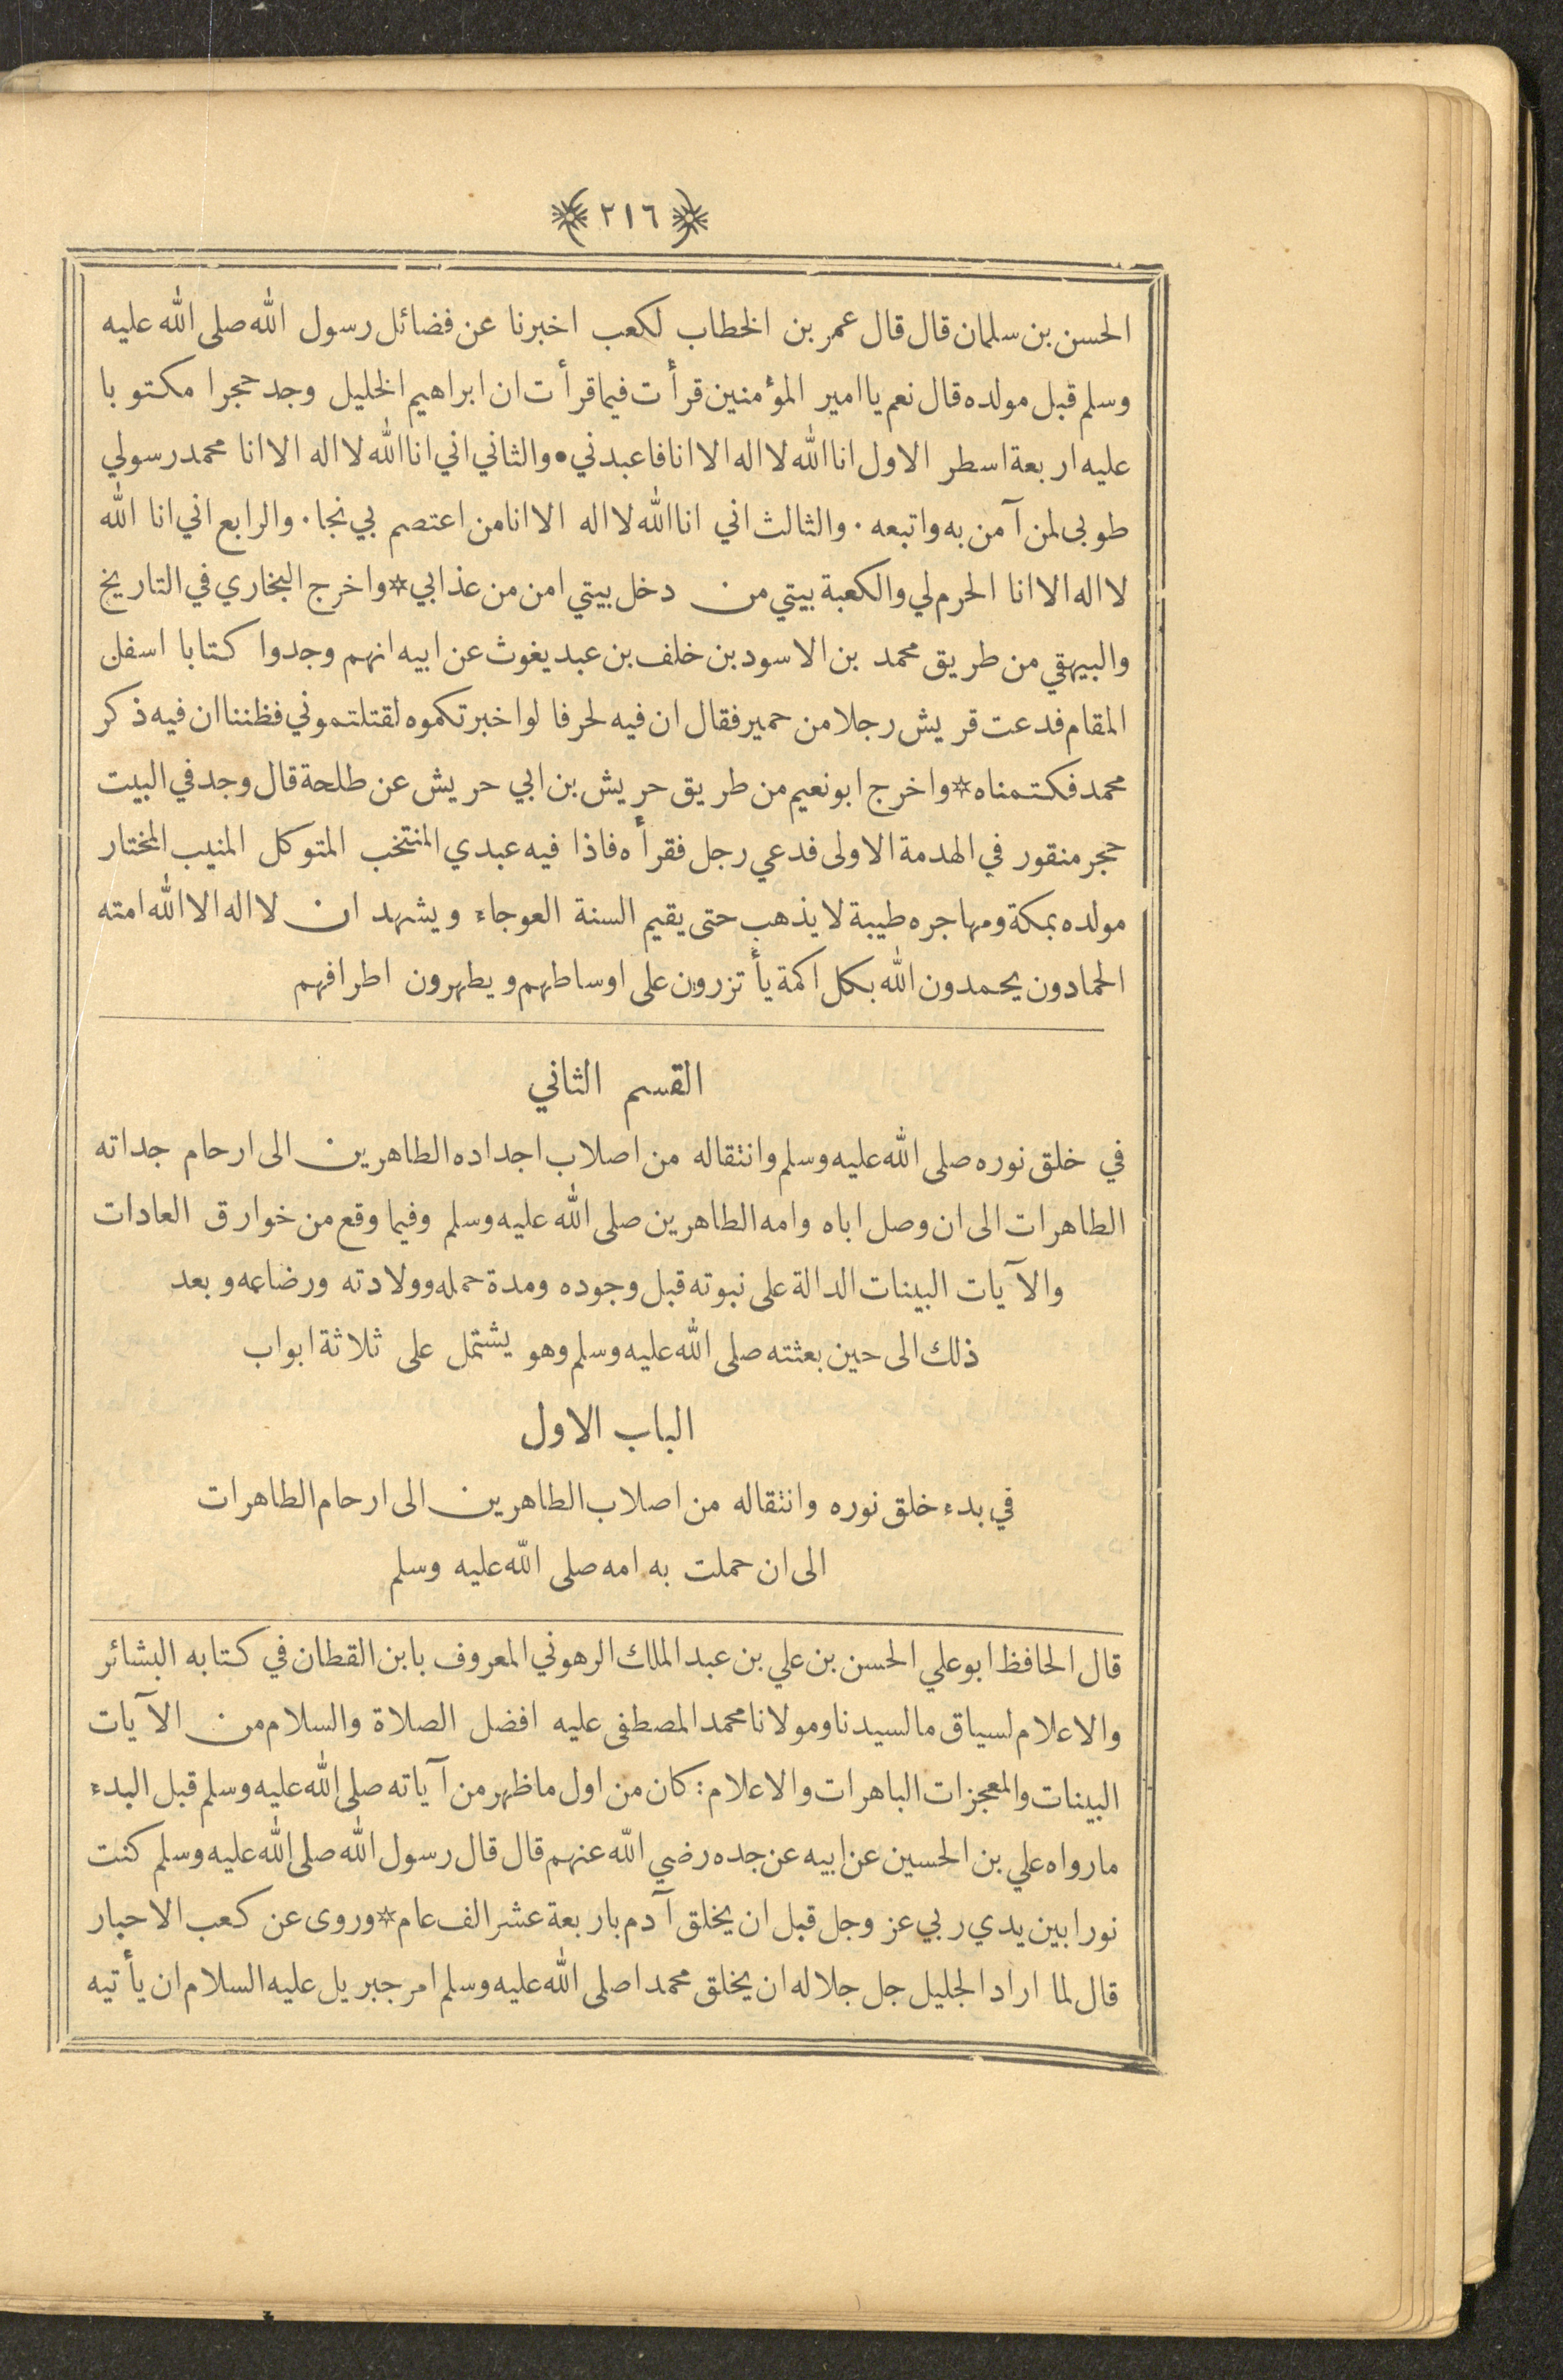 ﴿٢١٦﴾
الحسن بن سلمان قال قال عمر بن الخطاب لكعب اخبرنا عن فضائل رسول الله صلى الله عليه
وسلم قبل مولده قال نعم يا امير المؤمنين قرأت فيما قرأت ان ابراهيم الخليل وجد حجرا مكتوبا
عليه اربعة اسطر الاول انا الله لا اله الا انا فاعبدني • والثاني اني انا الله لا اله الا انا محمد رسولي
طوبى لمن آمن به واتبعه . والثالث اني انا الله لا اله الا انا من اعتصم بي نجا . والرابع اني انا الله
لا اله الا انا الحرم لي والكعبة بيتي من دخل بيتي امن من عذابي * واخرج البخاري في التاريخ
والبيهقي من طريق محمد بن الاسود بن خلف بن عبد يغوث عن ابيه انهم وجدوا كتابا اسفل
المقام فدعت قريش رجلا من حمير فقال ان فيه لحرفا لو اخبرتكموه لقتلتموني فظننا ان فيه ذكر
محمد فكتمناه * واخرج ابو نعيم من طريق حريش بن ابي حريش عن طلحة قال وجد في البيت
حجر منقور في الهدمة الاولى فدعي رجل فقرأه فاذا فيه عبدي المنتخب المتوكل المنيب المختار
مولده بمكة ومهاجره طيبة لا يذهب حتى يقيم السنة العوجاء ويشهد ان لا اله الا الله امته
الحمادون يحمدون الله بكل اكمة يأتزرون على اوساطهم ويطهرون اطرافهم
القسم الثاني
في خلق نوره صلى الله عليه وسلم وانتقاله من اصلاب اجداده الطاهرين الى ارحام جداته
الطاهرات الى ان وصل اباه وامه الطاهرين صلى الله عليه وسلم وفيما وقع من خوارق العادات
والآيات البينات الدالة على نبوته قبل وجوده ومدة حمله وولادته ورضاعه وبعد
ذلك الى حين بعثته صلى الله عليه وسلم وهو يشتمل على ثلاثة ابواب
الباب الاول
في بدء خلق نوره وانتقاله من اصلاب الطاهرين الى ارحام الطاهرات
الى ان حملت به امه صلى الله عليه وسلم
قال الحافظ ابو علي الحسن بن علي بن عبد الملك الرهوني المعروف بابن القطان في كتابه البشائر
والاعلام لسياق ما لسيدنا ومولانا محمد المصطفى عليه افضل الصلاة والسلام من الآيات
البينات والمعجزات الباهرات والاعلام : كان من اول ما ظهر من آياته صلى الله عليه وسلم قبل البدء
ما رواه علي بن الحسين عن ابيه عن جده رضي الله عنهم قال قال رسول الله صلى الله عليه وسلم كنت
نورا بين يدي ربي عز وجل قبل ان يخلق آدم باربعة عشر الف عام * وروى عن كعب الاحبار
قال لما اراد الجليل جل جلاله ان يخلق محمدا صلى الله عليه وسلم امر جبريل عليه السلام ان يأتيه